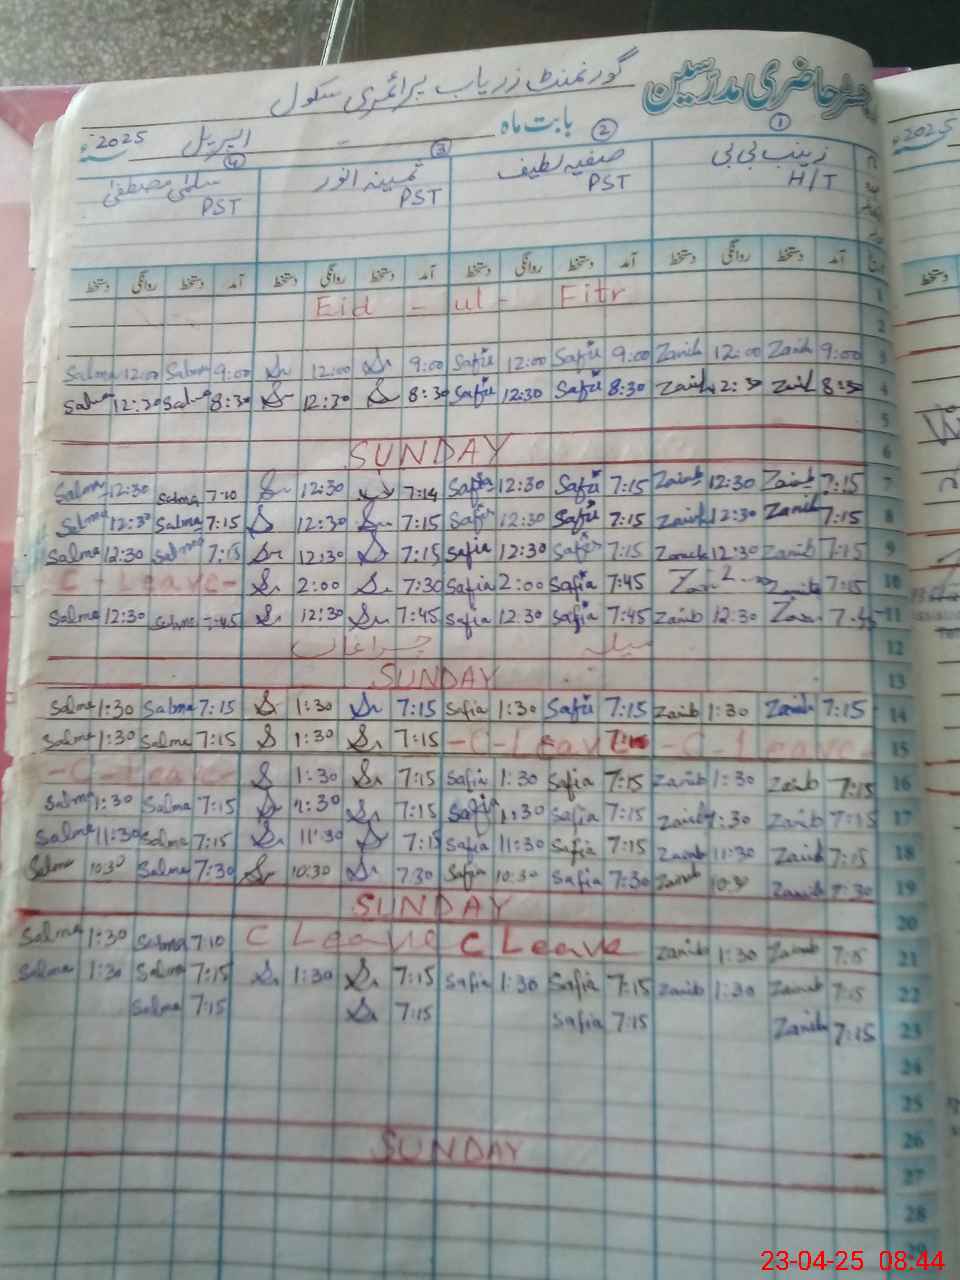 رجسٹر حاضری مدرسین گورنمنٹ زریاب پرائمری سکول
بابت ماہ اپریل 2025ء
① زینب بی بی ② صفیہ لطیف ③ ثمینہ انور ④ سلمیٰ مصطفیٰ
H/T PST PST PST
آمد دستخط روانگی دستخط آمد دستخط روانگی دستخط آمد دستخط روانگی دستخط آمد دستخط روانگی دستخط
Eid - ul - Fitr 1
2
Salma 12:00 Salma 9:00 12:00 9:00 Safia 12:00 Safia 9:00 Zainib 12:00 Zainib 9:00 3
Salma 12:30 Salma 8:30 12:30 8:30 Safia 12:30 Safia 8:30 Zainib 12:30 Zainib 8:30 4
5
SUNDAY 6
Salma 12:30 Salma 12:30 7:14 Safia 12:30 Safia 7:15 Zainib 12:30 Zainib 7:15 7
Salma 12:30 Salma 7:15 12:30 7:15 Safia 12:30 Safia 7:15 Zainib 12:30 Zainib 7:15 8
Salma 12:30 Salma 7:15 12:30 7:15 Safia 12:30 Safia 7:15 Zainib 12:30 Zainib 7:15 9
C - Leave - 2:00 7:30 Safia 2:00 Safia 7:45 Zainib 7:15 10
Salma 12:30 Salma 7:45 12:30 7:45 Safia 12:30 Safia 7:45 Zainib 12:30 7:45 11
میلہ چراغاں 12
SUNDAY 13
Salma 1:30 Salma 7:15 1:30 7:15 Safia 1:30 Safia 7:15 Zainib 1:30 Zainib 7:15 14
Salma 1:30 Salma 7:15 1:30 7:15 - C - Leave - C - Leave - 15
- C - Leave - 1:30 7:15 Safia 1:30 Safia 7:15 Zainib 1:30 Zainib 7:15 16
Salma 1:30 Salma 7:15 1:30 7:15 Safia 1:30 Safia 7:15 Zainib 1:30 Zainib 7:15 17
Salma 11:30 Salma 7:15 11:30 7:15 Safia 11:30 Safia 7:15 Zainib 11:30 Zainib 7:15 18
Salma 10:30 Salma 7:30 10:30 7:30 Safia 10:30 Safia 7:30 Zainib 10:30 Zainib 7:30 19
SUNDAY 20
Salma 1:30 Salma 7:10 C Leave C Leave Zainib 1:30 Zainib 7:15 21
Salma 1:30 Salma 7:15 1:30 7:15 Safia 1:30 Safia 7:15 Zainib 1:30 Zainib 7:15 22
Salma 7:15 7:15 Safia 7:15 Zainib 7:15 23
24
25
26
SUNDAY 27
28
29
2025
دستخط
23-04-25 08:44